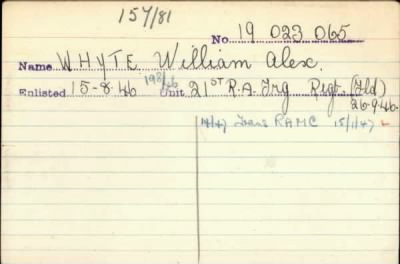 157/81
No. 19 023 065
Name WHYTE William Alex.
Enlisted 15-8-46 198/46 Unit 21ST R.A. Trg Regt. (Fld)
26-9-46.
14/47 Trans RAMC 15/1/47